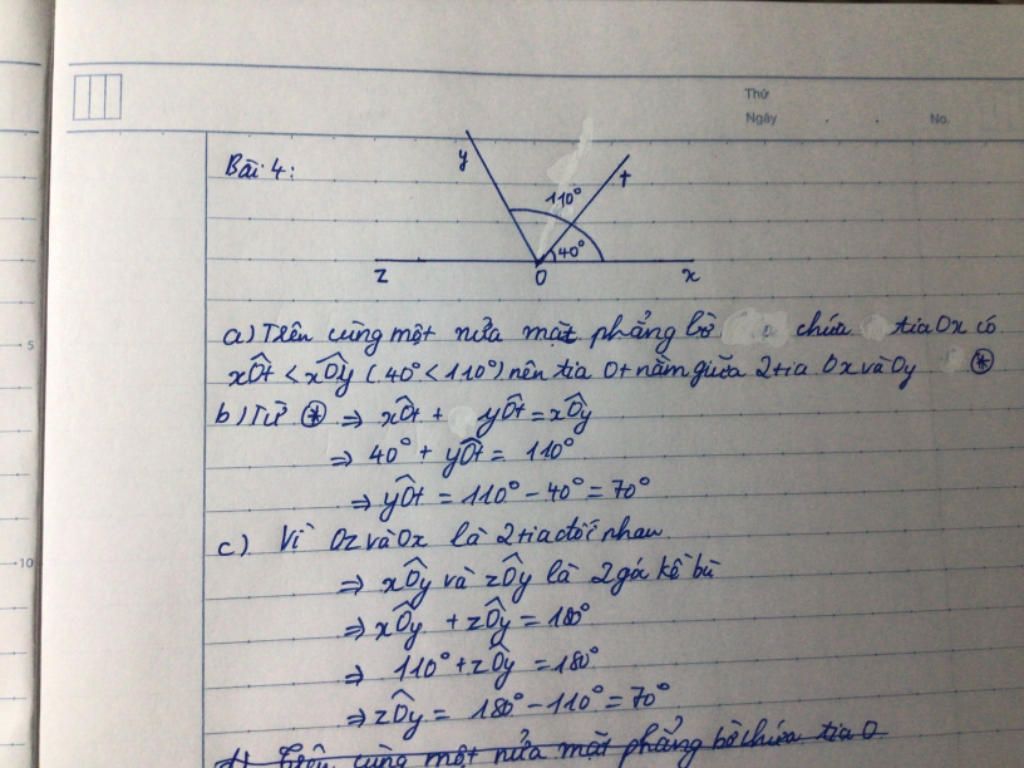 Thứ
Ngày
No.
Bài 4:
y
t
110°
40°
z
O
x
a) Trên cùng một nửa mặt phẳng bờ chứa tia Ox có
xÔt < xÔy (40° < 110°) nên tia Ot nằm giữa 2 tia Ox và Oy (*)
5
b) Từ (*) ⇒ xÔt + yÔt = xÔy
⇒ 40° + yÔt = 110°
⇒ yÔt = 110° - 40° = 70°
c) Vì Oz và Ox là 2 tia đối nhau
10
⇒ xÔy và zÔy là 2 góc kề bù
⇒ xÔy + zÔy = 180°
⇒ 110° + zÔy = 180°
⇒ zÔy = 180° - 110° = 70°
d) Trên cùng một nửa mặt phẳng bờ chứa tia O